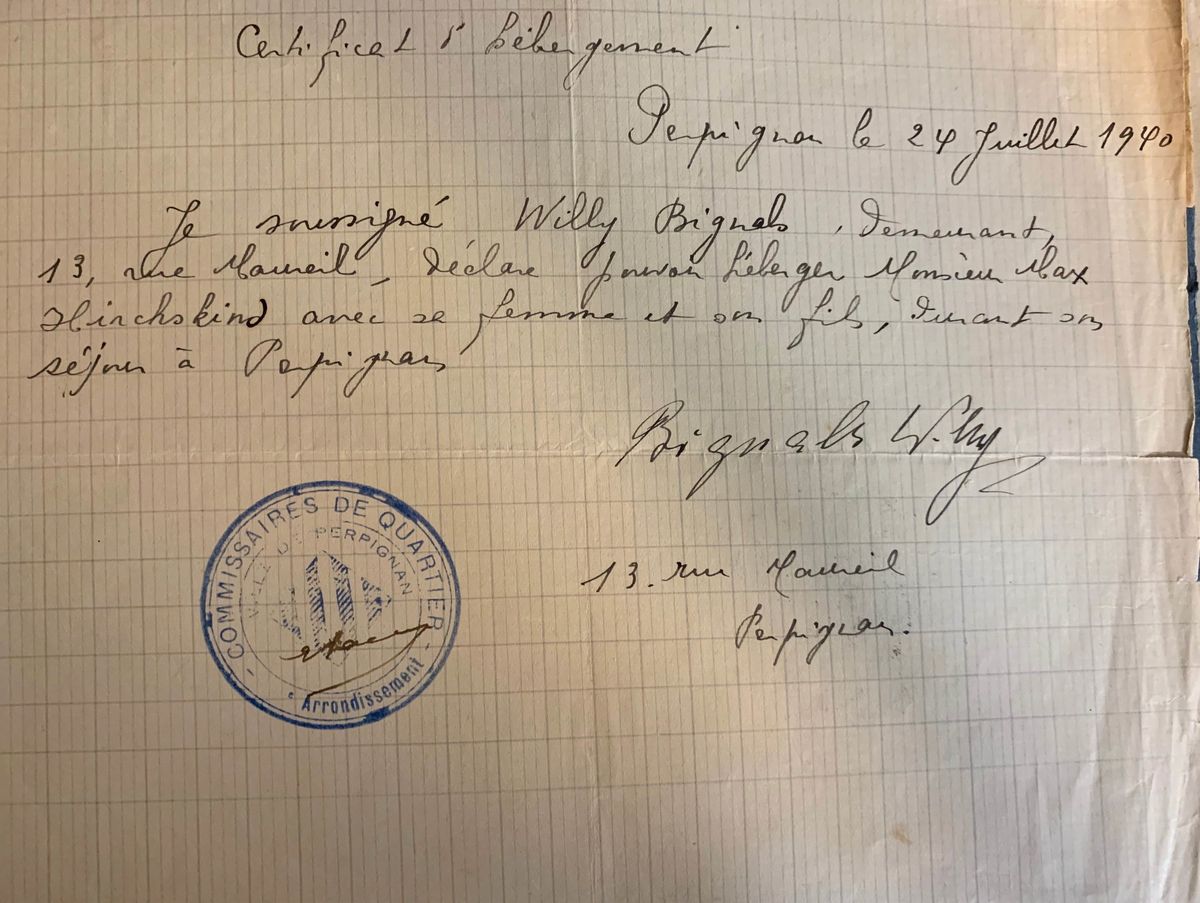 Certificat d'hébergement
Perpignan le 24 Juillet 1940
Je soussigné Willy Bignals, demeurant,
13, rue Maureil, déclare pouvoir héberger Monsieur Max
Hirchskind avéc sa femme et son fils, durant son
séjour à Perpignan
Bignals Willy
13. rue Maureil
Perpignan.
- COMMISSAIRES DE QUARTIER -
VILLE DE PERPIGNAN
e Arrondissement